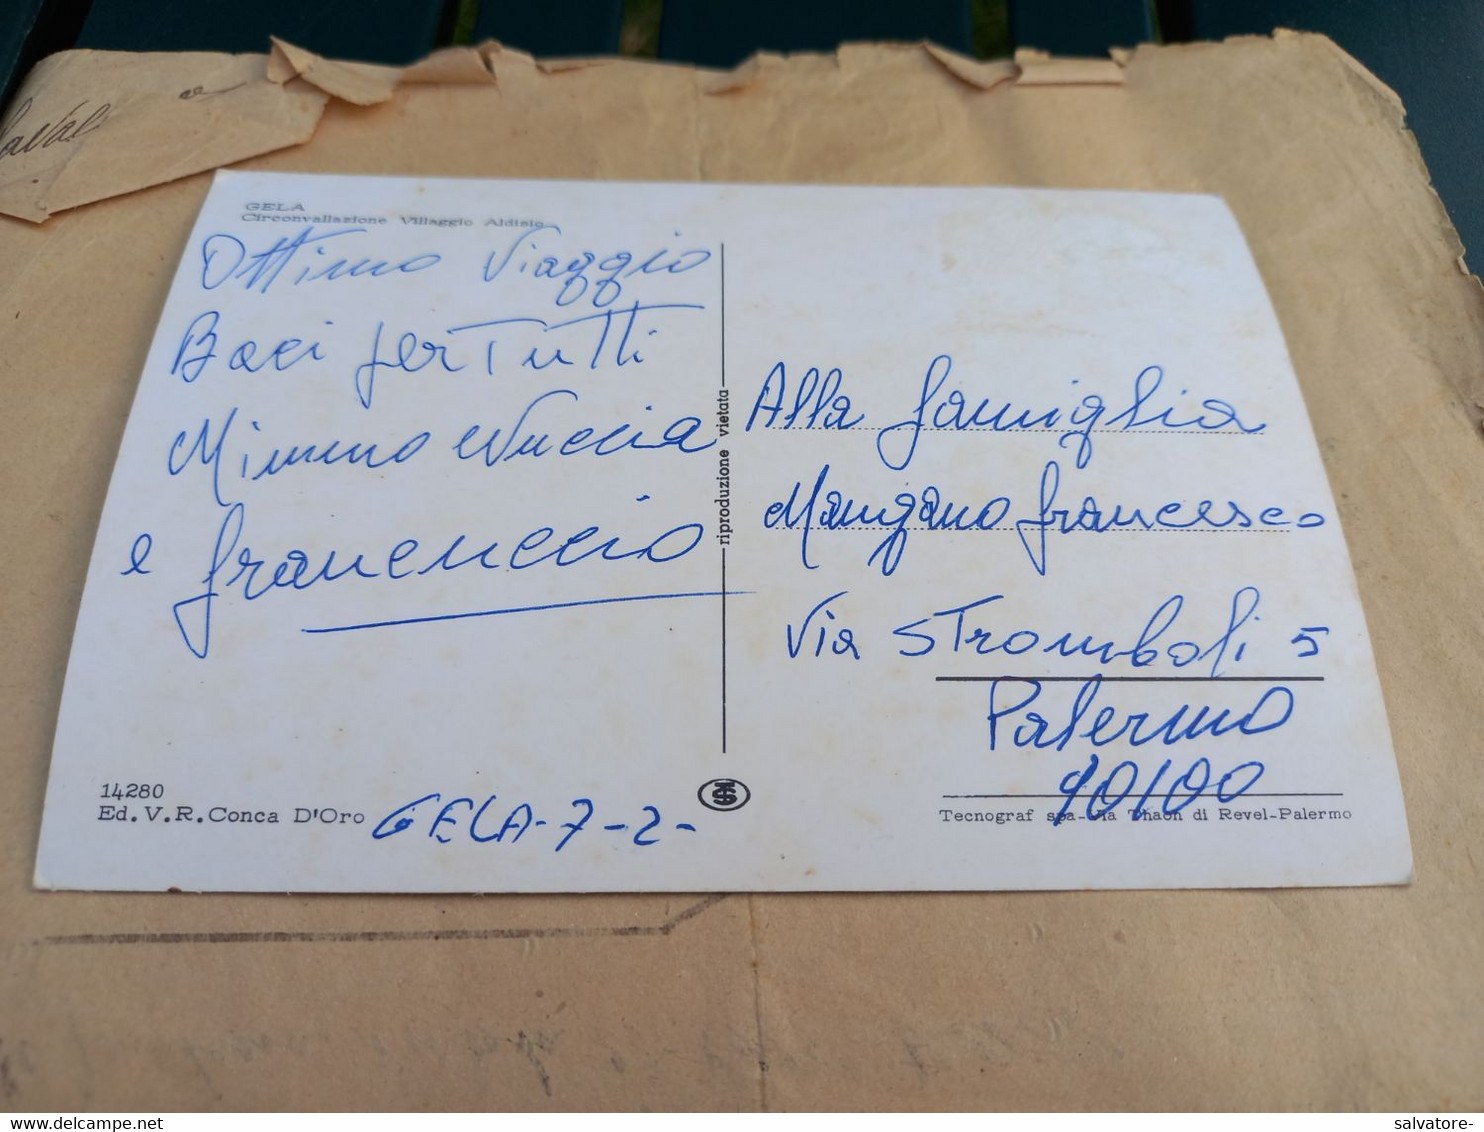 GELA
Circonvallazione Villaggio Aldisio
Ottimo Viaggio
Baci per Tutti
Mimmo Nuccia
e francuccio
riproduzione vietata
Alla famiglia
Mangano francesco
Via STromboli 5
Palermo
90100
14280
Ed. V. R. Conca D'Oro
GELA-7-2-
Tecnograf spa-Via Thaon di Revel-Palermo
salvatore-